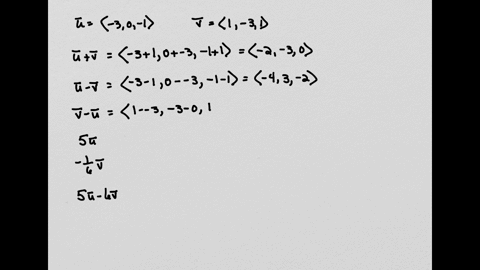 ū = ⟨-3, 0, -1⟩ v̄ = ⟨1, -3, 1⟩
ū+v̄ = ⟨-3+1, 0+-3, -1+1⟩ = ⟨-2, -3, 0⟩
ū-v̄ = ⟨-3-1, 0--3, -1-1⟩ = ⟨-4, 3, -2⟩
v̄-ū = ⟨1--3, -3-0, 1
5ū
-1/6 v̄
5ū-6v̄